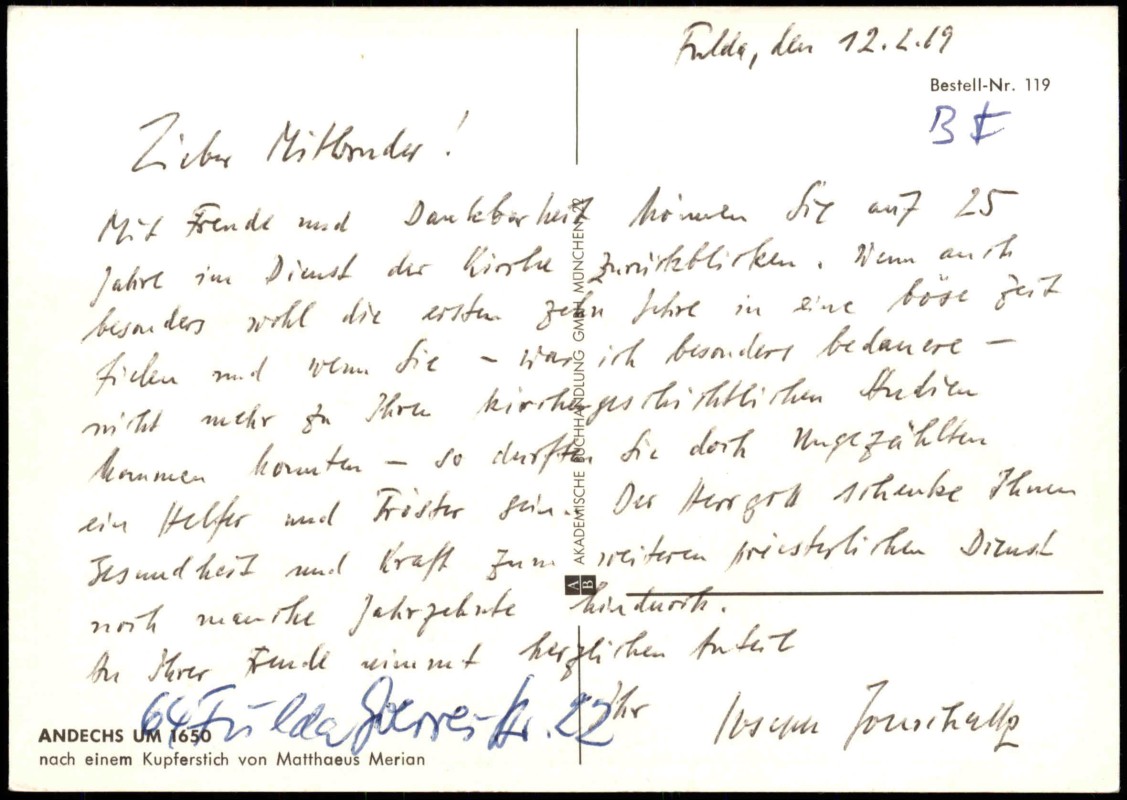 Fulda, den 12.2.69
Bestell-Nr. 119
Lieber Mitbruder!
Mit Freude und Dankbarkeit können Sie auf 25
Jahre im Dienst der Kirche zurückblicken. Wenn auch
besonders wohl die ersten zehn Jahre in eine böse Zeit
fielen und wenn Sie – was ich besonders bedauere –
nicht mehr zu Ihren kirchengeschichtlichen Studien
kommen konnten – so durften Sie doch Ungezählten
ein Helfer und Tröster sein. Der Herrgott schenke Ihnen
Gesundheit und Kraft zum weiteren priesterlichen Dienst
noch manche Jahrzehnte hindurch.
An Ihrer Freude nimmt herzlichen Anteil
Ihr Joseph
64 Fulda Str. 22
AKADEMISCHE BUCHHANDLUNG GMBH, MÜNCHEN 22
A B
ANDECHS UM 1650
nach einem Kupferstich von Matthaeus Merian